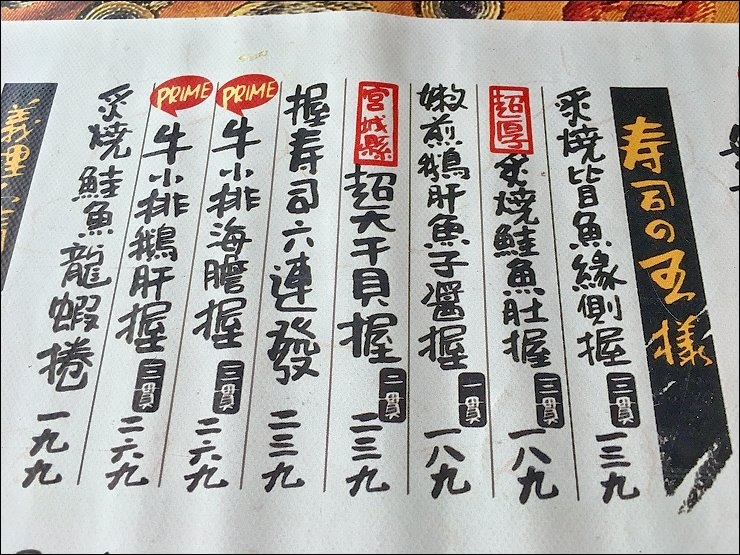 寿司の王樣
炙燒皆魚緣側握 三貫 一三九
超厚 炙燒鮭魚肚握 三貫 一八九
嫩煎鵝肝魚子醬握 一貫 一八九
宮城縣 超大干貝握 二貫 二三九
握寿司六連發 二三九
PRIME 牛小排海膽握 三貫 二六九
PRIME 牛小排鵝肝握 三貫 二六九
炙燒鮭魚龍蝦捲 一九九